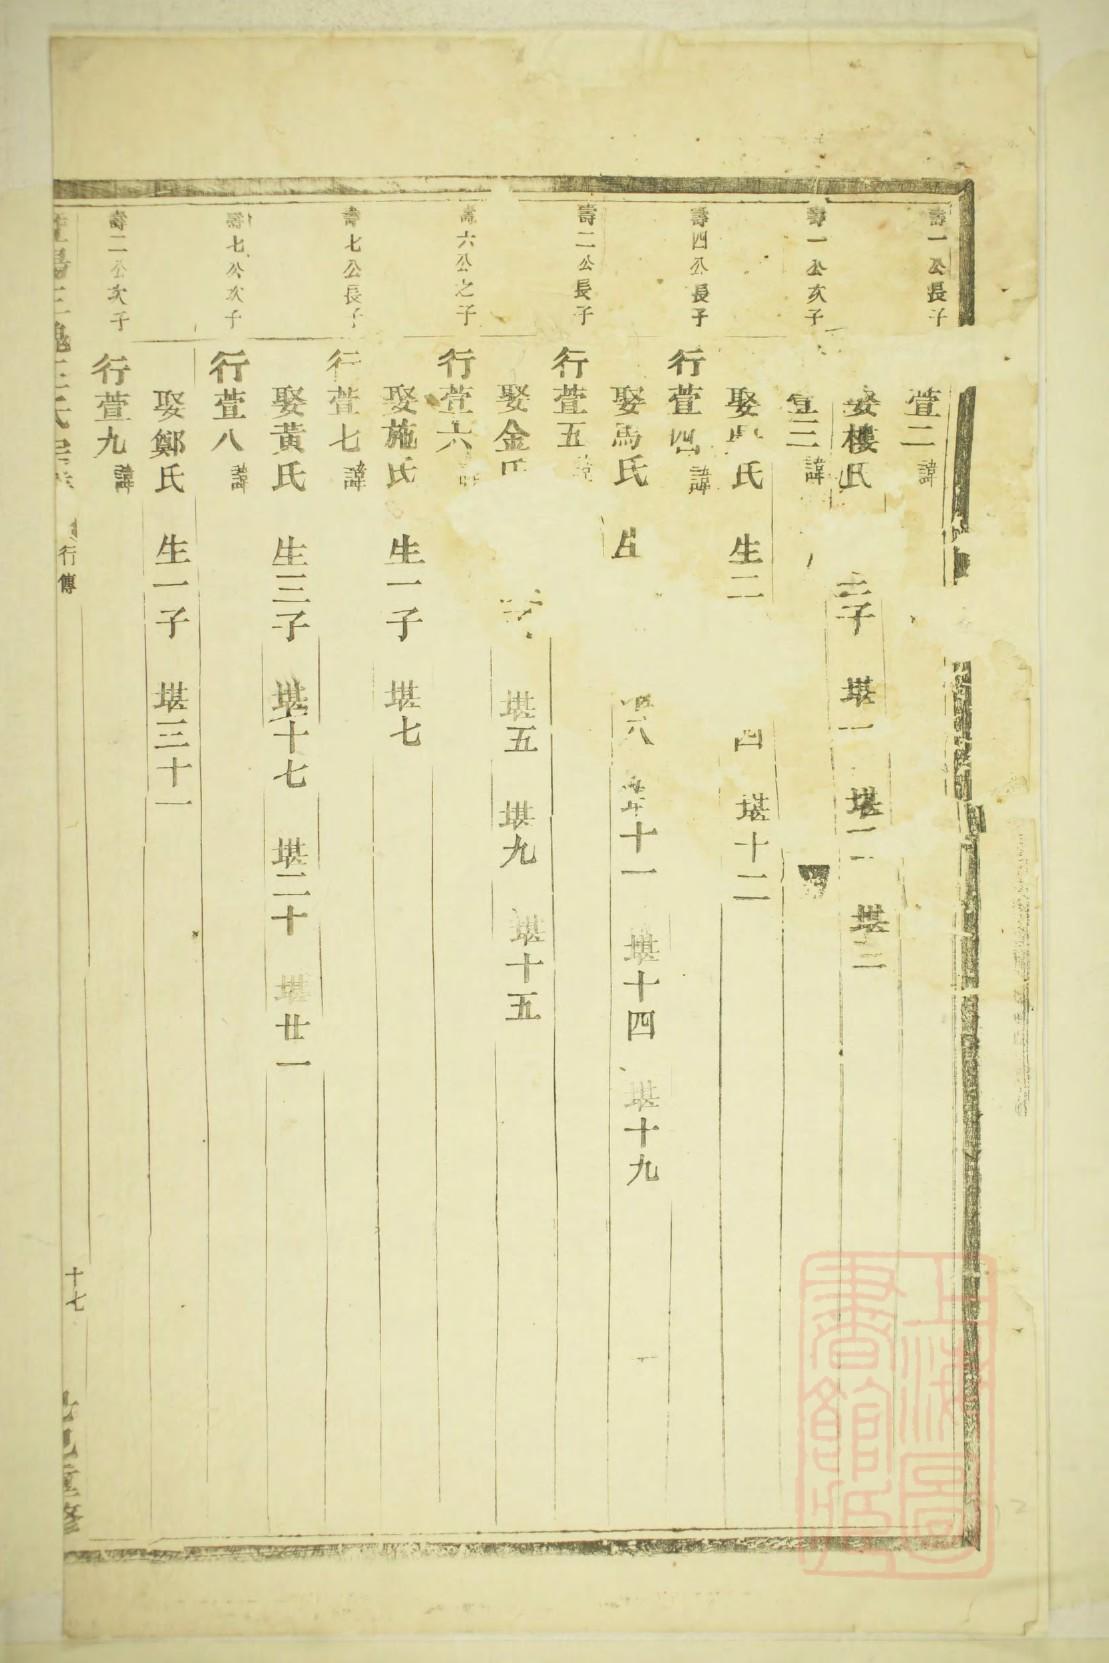 壽一公長子
萱二 諱
樓氏 子 堪一 堪二 堪三
壽一公次子
萱三 諱
娶 氏 生二 四 堪十二
壽四公長子
行萱四 諱
娶馬氏 生 八 十一 堪十四 堪十九
壽二公長子
行萱五
娶金氏 堪五 堪九 堪十五
壽六公之子
行萱六
娶施氏 生一子 堪七
壽七公長子
行萱七 諱
娶黃氏 生三子 堪十七 堪二十 堪廿一
壽七公次子
行萱八 諱
娶鄭氏 生一子 堪三十一
壽二公次子
行萱九 諱
行傳
十七
重修
上海圖書館藏